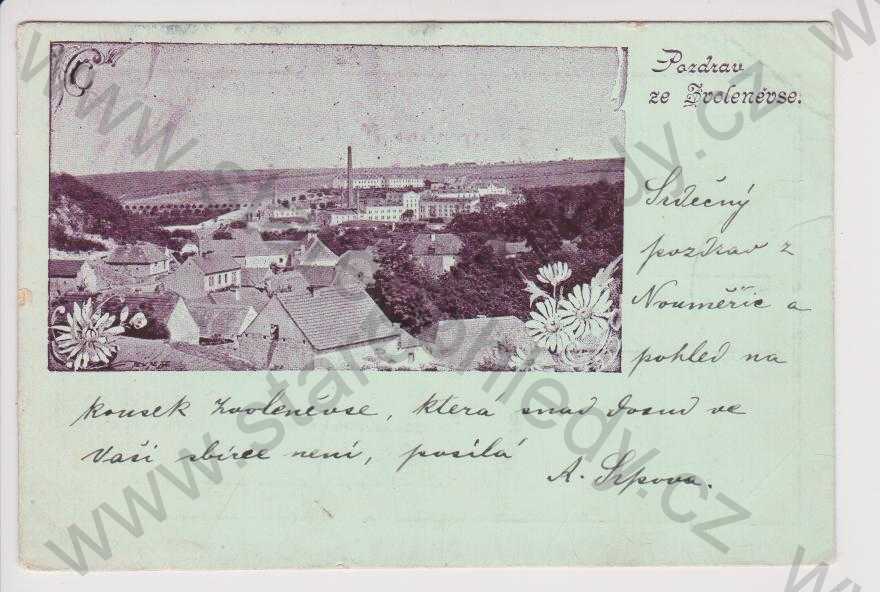 Pozdrav
ze Zvolenévse.
Srdečný
pozdrav z
Nouměřic a
pohled na
kousek Zvolenévse, která snad dosud ve
Vaší sbírce není, posílá
A. Srpova.
www.stare-pohledy.cz